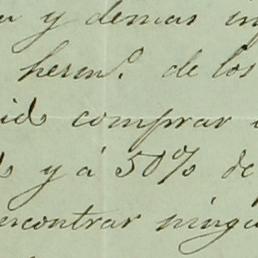 y demas in
heren.º de los
id comprar
y á 50% de
encontrar ningu